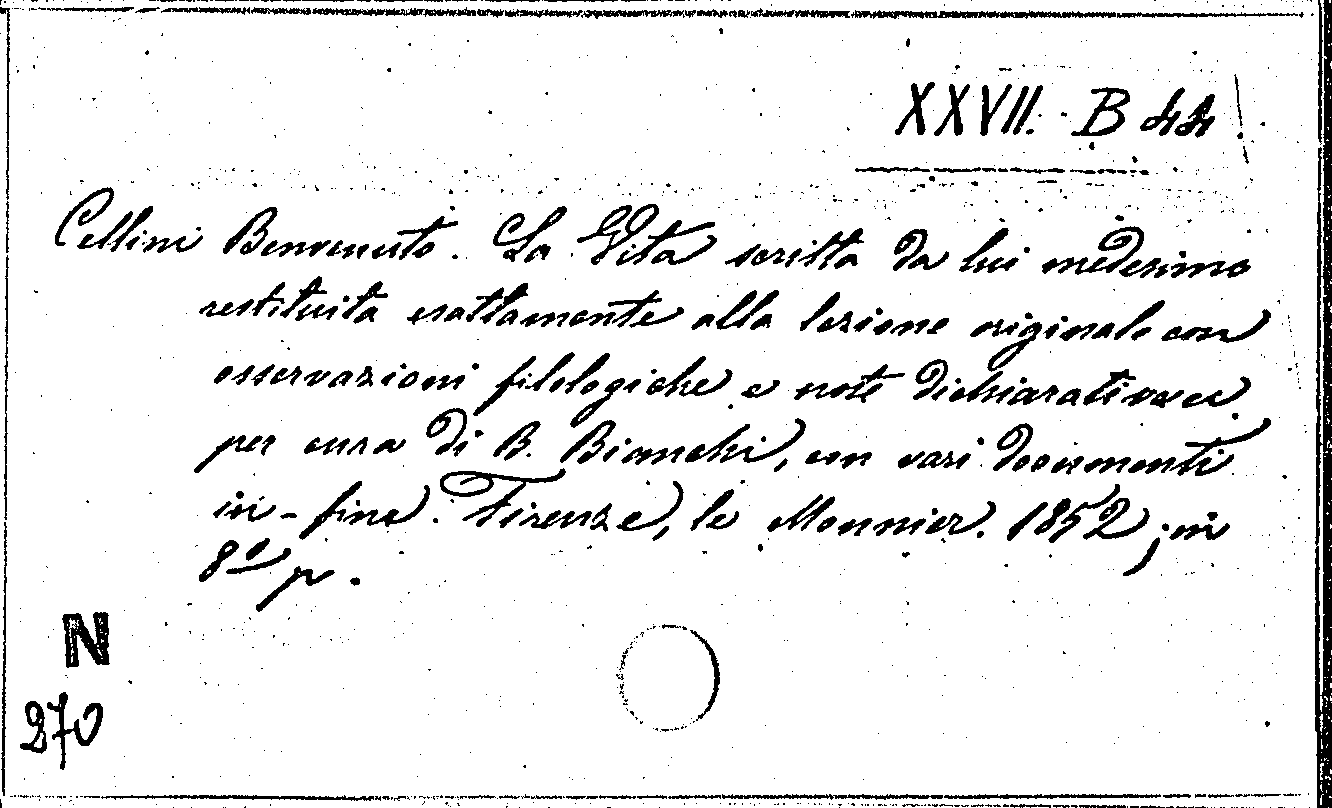 XXVII. B 44
Cellini Benvenuto. La Vita scritta da lui medesimo
restituita esattamente alla lezione originale con
osservazioni filologiche e note dichiarative ec
per cura di B. Bianchi, con vari documenti
in-fine. Firenze, le Monnier. 1852; in
8º p.
N
270